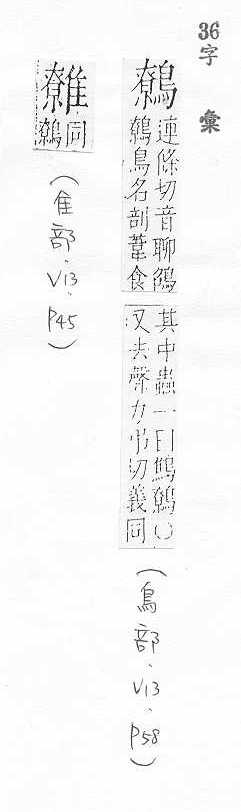 36字 彙
鷯
連條切音聊鷦
鷯鳥名剖葦食
其中蟲一曰鷦鷯○
又去聲力弔切義同
(鳥部、V13、P58)
同
鷯
(隹部、V13、P45)